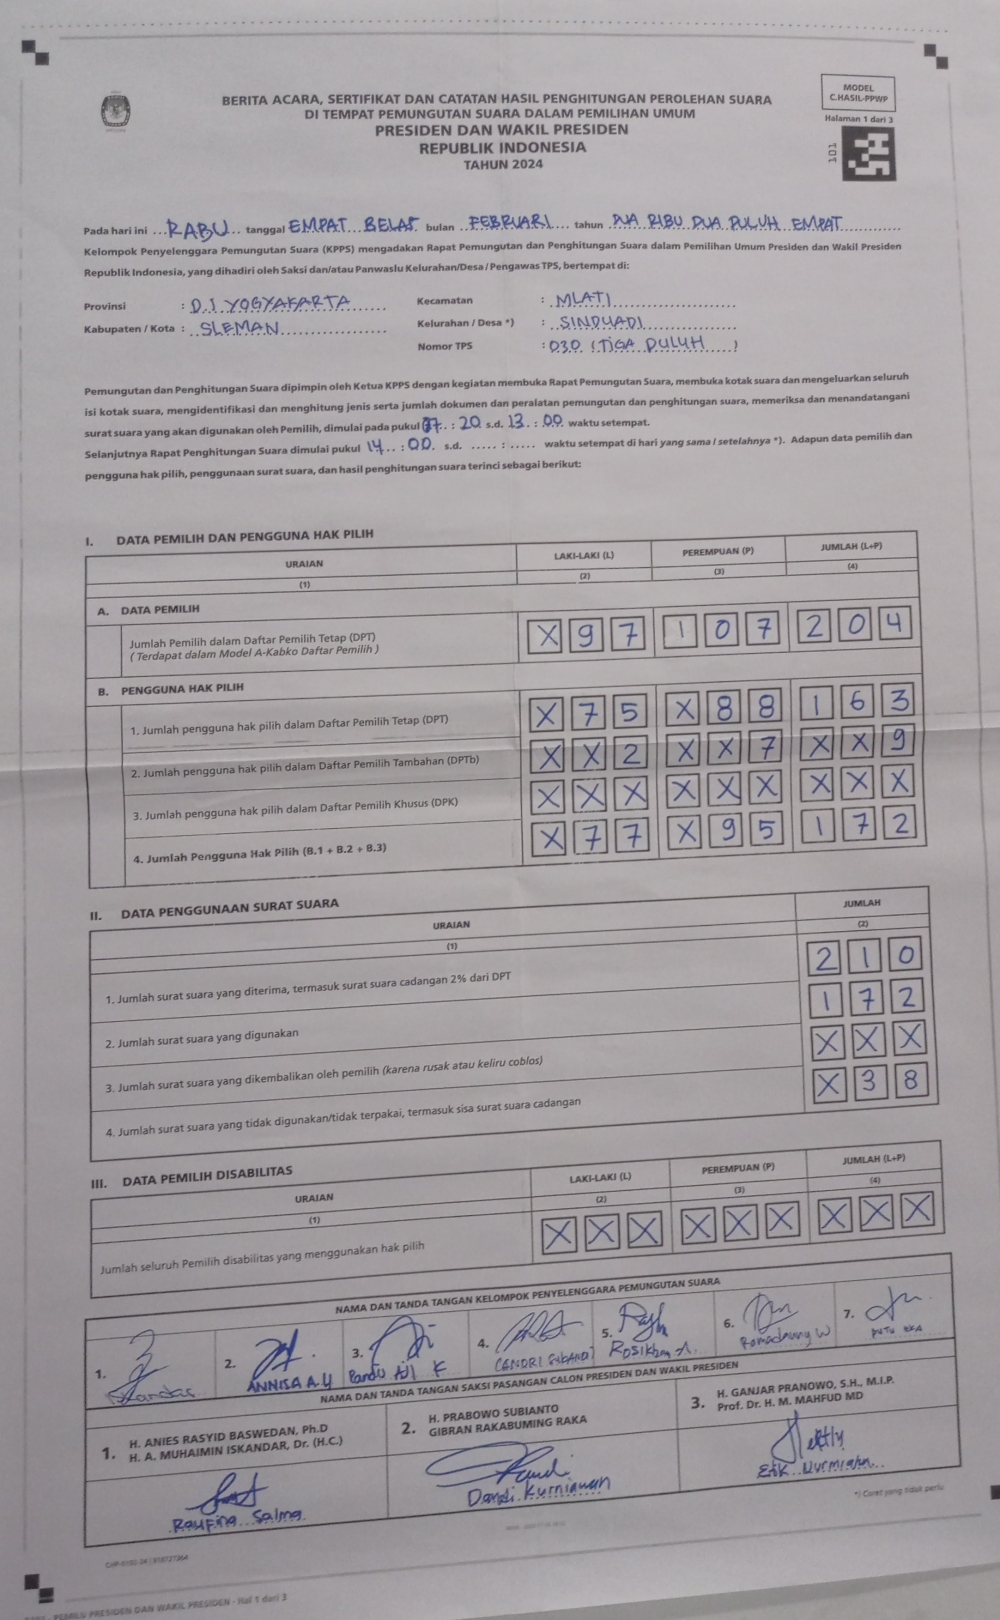 MODEL
C.HASIL-PPWP
Halaman 1 dari 3
101
BERITA ACARA, SERTIFIKAT DAN CATATAN HASIL PENGHITUNGAN PEROLEHAN SUARA
DI TEMPAT PEMUNGUTAN SUARA DALAM PEMILIHAN UMUM
PRESIDEN DAN WAKIL PRESIDEN
REPUBLIK INDONESIA
TAHUN 2024
Pada hari ini ... RABU ... tanggal EMPAT BELAS bulan ... FEBRUARI ... tahun DUA RIBU DUA PULUH EMPAT
Kelompok Penyelenggara Pemungutan Suara (KPPS) mengadakan Rapat Pemungutan dan Penghitungan Suara dalam Pemilihan Umum Presiden dan Wakil Presiden
Republik Indonesia, yang dihadiri oleh Saksi dan/atau Panwaslu Kelurahan/Desa / Pengawas TPS, bertempat di:
Provinsi : D.I YOGYAKARTA Kecamatan : MLATI
Kabupaten / Kota : SLEMAN Kelurahan / Desa *) : SINDUADI
Nomor TPS : 030 (TIGA PULUH)
Pemungutan dan Penghitungan Suara dipimpin oleh Ketua KPPS dengan kegiatan membuka Rapat Pemungutan Suara, membuka kotak suara dan mengeluarkan seluruh
isi kotak suara, mengidentifikasi dan menghitung jenis serta jumlah dokumen dan peralatan pemungutan dan penghitungan suara, memeriksa dan menandatangani
surat suara yang akan digunakan oleh Pemilih, dimulai pada pukul 07 : 20 s.d. 13 : 00 waktu setempat.
Selanjutnya Rapat Penghitungan Suara dimulai pukul 14 : 00 s.d. ..... : ..... waktu setempat di hari yang sama / setelahnya *). Adapun data pemilih dan
pengguna hak pilih, penggunaan surat suara, dan hasil penghitungan suara terinci sebagai berikut:
I. DATA PEMILIH DAN PENGGUNA HAK PILIH
URAIAN LAKI-LAKI (L) PEREMPUAN (P) JUMLAH (L+P)
(1) (2) (3) (4)
A. DATA PEMILIH
Jumlah Pemilih dalam Daftar Pemilih Tetap (DPT) X 9 7 1 0 7 2 0 4
( Terdapat dalam Model A-Kabko Daftar Pemilih )
B. PENGGUNA HAK PILIH
1. Jumlah pengguna hak pilih dalam Daftar Pemilih Tetap (DPT) X 7 5 X 8 8 1 6 3
2. Jumlah pengguna hak pilih dalam Daftar Pemilih Tambahan (DPTb) X X 2 X X 7 X X 9
3. Jumlah pengguna hak pilih dalam Daftar Pemilih Khusus (DPK) X X X X X X X X X
4. Jumlah Pengguna Hak Pilih (B.1 + B.2 + B.3) X 7 7 X 9 5 1 7 2
II. DATA PENGGUNAAN SURAT SUARA
URAIAN JUMLAH
(1) (2)
1. Jumlah surat suara yang diterima, termasuk surat suara cadangan 2% dari DPT 2 1 0
2. Jumlah surat suara yang digunakan 1 7 2
3. Jumlah surat suara yang dikembalikan oleh pemilih (karena rusak atau keliru coblos) X X X
4. Jumlah surat suara yang tidak digunakan/tidak terpakai, termasuk sisa surat suara cadangan X 3 8
III. DATA PEMILIH DISABILITAS
URAIAN LAKI-LAKI (L) PEREMPUAN (P) JUMLAH (L+P)
(1) (2) (3) (4)
Jumlah seluruh Pemilih disabilitas yang menggunakan hak pilih X X X X X X X X X
NAMA DAN TANDA TANGAN KELOMPOK PENYELENGGARA PEMUNGUTAN SUARA
1. 2. 3. 4. 5. 6. 7.
ANNISA A.Y Pandu Aji K PUTU EKA
NAMA DAN TANDA TANGAN SAKSI PASANGAN CALON PRESIDEN DAN WAKIL PRESIDEN
1. H. ANIES RASYID BASWEDAN, Ph.D
H. A. MUHAIMIN ISKANDAR, Dr. (H.C.)
2. H. PRABOWO SUBIANTO
GIBRAN RAKABUMING RAKA
3. H. GANJAR PRANOWO, S.H., M.I.P.
Prof. Dr. H. M. MAHFUD MD
Raufina Salma Dandi Kurniawan
*) Coret yang tidak perlu
PEMILU PRESIDEN DAN WAKIL PRESIDEN - Hal 1 dari 3